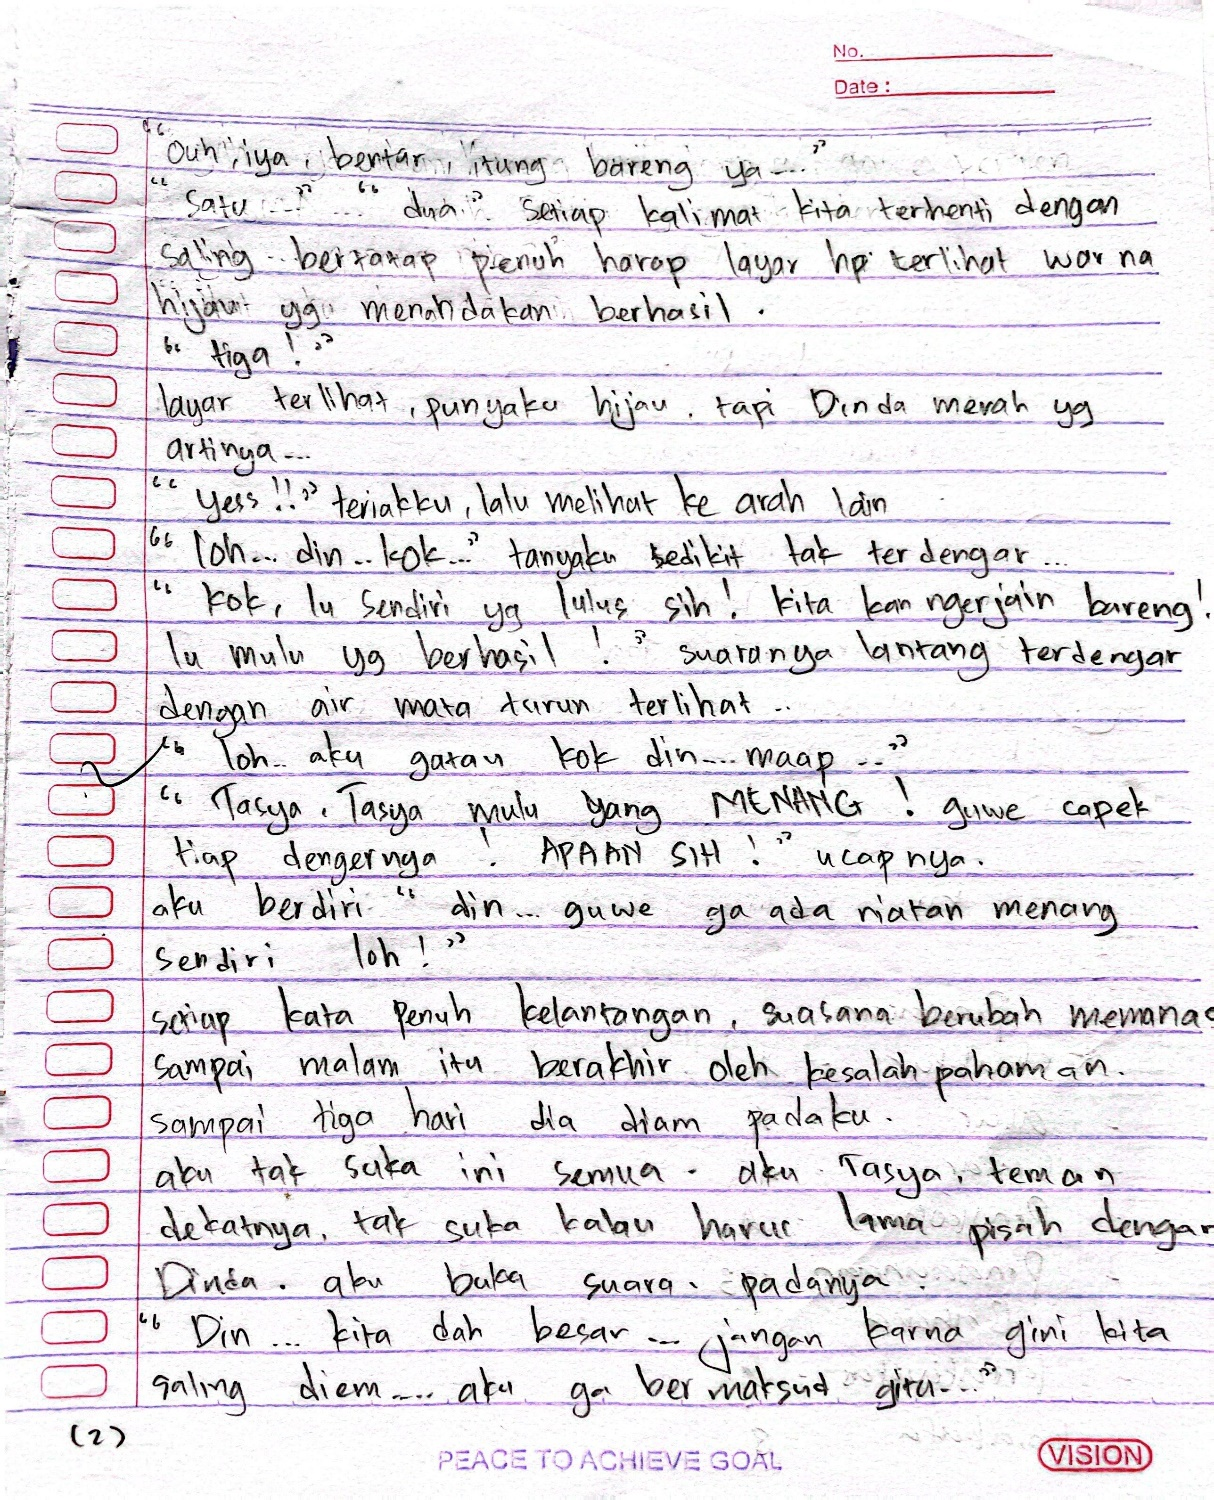 No.
Date :
"Ouh, iya, bentar, itung bareng ya...."
"Satu ....." "dua" Setiap kalimat kita terhenti dengan
saling bertatap penuh harap layar hp terlihat warna
hijau yg menandakan berhasil.
"tiga!"
layar terlihat, punyaku hijau. tapi Dinda merah yg
artinya...
"Yess!!" teriakku, lalu melihat ke arah lain
"loh... din.. kok..." tanyaku sedikit tak terdengar...
"kok, lu sendiri yg lulus sih! kita kan ngerjain bareng!
lu mulu yg berhasil!" suaranya lantang terdengar
dengan air mata turun terlihat..
"loh.. aku gatau kok din.... maap..."
"Tasya, Tasya mulu yang MENANG! guwe capek
tiap dengernya! APAAN SIH!" ucapnya.
aku berdiri "din... guwe ga ada niatan menang
sendiri loh!"
setiap kata penuh kelantangan, suasana berubah memanas
sampai malam itu berakhir oleh kesalah pahaman.
sampai tiga hari dia diam padaku.
aku tak suka ini semua. aku Tasya, teman
dekatnya, tak suka kalau harus lama pisah dengan
Dinda. aku buka suara. padanya.
"Din... kita dah besar... jangan karna gini kita
saling diem.... aku ga bermaksud gitu...."
(2)
PEACE TO ACHIEVE GOAL
VISION